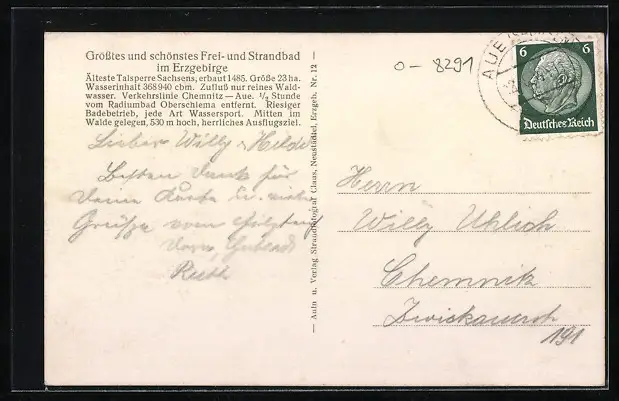 Größtes und schönstes Frei- und Strandbad
im Erzgebirge
Älteste Talsperre Sachsens, erbaut 1485. Größe 23 ha.
Wasserinhalt 368 940 cbm. Zufluß nur reines Wald-
wasser. Verkehrslinie Chemnitz — Aue. 1/2 Stunde
vom Radiumbad Oberschlema entfernt. Riesiger
Badebetrieb, jede Art Wassersport. Mitten im
Walde gelegen, 530 m hoch, herrliches Ausflugsziel.
Lieber Willy u. Hilde
Besten Dank für
Deine Karte u. viele
Grüße vom
Ruth
— Aufn u. Verlag Strandfotograf Claus, Neustädtel, Erzgeb. Nr. 12 —
0 - 8291
AUE
6 6
Deutsches Reich
Herrn
Willy Uhlich
Chemnitz
Zwickauerstr
191